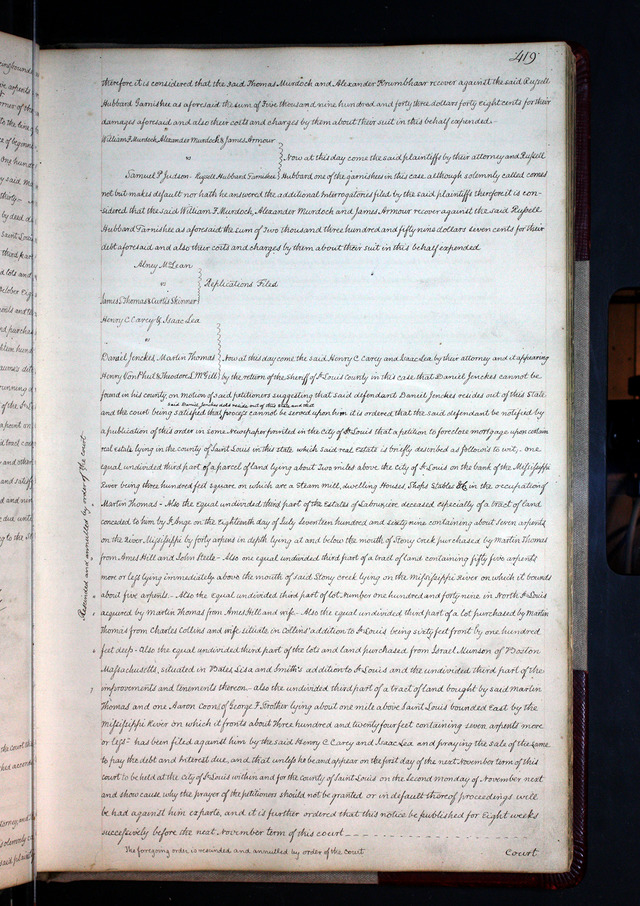 419
therefore it is considered that the said Thomas Murdock and Alexander Krumbhaar recover against the said Russell
Hubbard Garnishee as aforesaid the sum of Five thousand nine hundred and forty three dollars forty eight cents for their
damages aforesaid and also their costs and charges by them about their suit in this behalf expended.
William F. Murdock Alexander Murdock & James Armour
vs
Now at this day come the said plaintiffs by their attorney and Russell
Samuel P. Judson. Russell Hubbard Garnishee
Hubbard one of the garnishees in this case although solemnly called comes
not but makes default nor hath he answered the additional Interrogatories filed by the said plaintiffs therefore it is con-
sidered that the said William F. Murdock, Alexander Murdock and James Armour recover against the said Russell
Hubbard Garnishee as aforesaid the sum of Two thousand three hundred and fifty nine dollars seven cents for their
debt aforesaid and also their costs and charges by them about their suit in this behalf expended
Abney McLean
vs
Replications Filed
James S Thomas & Curtis Skinner
Henry C Carey & Isaac Lea
vs
Daniel Jenckes. Martin Thomas
Now at this day come the said Henry C. Carey and Isaac Lea by their attorney and it appearing
Henry Von Phul & Theodore L. McGill
by the return of the sheriff of St Louis county in this case that Daniel Jenckes cannot be
found in his county, on motion of said petitioners suggesting that said defendant Daniel Jenckes resides out of this State
said Daniel Jenckes doth reside out of this state and that
and the court being satisfied that process cannot be served upon him it is ordered that the said defendant be notified by
a publication of this order in some Newspaper printed in the City of St Louis that a petition to foreclose mortgage upon certain
real estate lying in the county of Saint Louis in this state which said real estate is briefly described as follows to wit, one
equal undivided third part of a parcel of land lying about Two miles above the city of St Louis on the bank of the Mississippi
River being three hundred feet square on which are a steam mill, dwelling Houses, Shops Stables &c in the occupation of
Martin Thomas - Also the equal undivided third part of the Estates of Labuxiere deceased especially of a tract of land
conceded to him by St Ange on the Eighteenth day of July seventeen hundred and sixty nine containing about seven arpents
on the River Mississippi by forty arpens in depth lying at and below the mouth of Stony Creek purchased by Martin Thomas
from Ames Hill and John Steele - Also one equal undivided third part of a tract of land containing fifty five arpents
more or less lying immediately above the mouth of said Stony creek lying on the Mississippi River on which it bounds
about five arpents. - Also the equal undivided third part of lot number one hundred and forty nine in North St Louis
acquired by Martin Thomas from Ames Hill and wife - Also the equal undivided third part of a lot purchased by Martin
Thomas from Charles Collins and wife situate in Collins' addition to St Louis being sixty feet front by one hundred
feet deep - also the equal undivided third part of the lots and land purchased from Israel Munson of Boston
Massachusetts, situated in Bates, Lisa and Smith's addition to St Louis and the undivided third part of the
improvements and tenements thereon - also the undivided third part of a tract of land bought by said Martin
Thomas and one Aaron Coons of George F. Strother lying about one mile above Saint Louis bounded East by the
Mississippi River on which it fronts about Three hundred and twenty four feet containing seven arpents more
or less - has been filed against him by the said Henry C Carey and Isaac Lea and praying the sale of the same
to pay the debt and Interest due, and that unless he be and appear on the first day of the next November term of this
court to be held at the City of St Louis within and for the county of Saint Louis on the second monday of November next
and show cause why the prayer of the petitioners should not be granted or in default thereof proceedings will
be had against him exparte, and it is further ordered that this notice be published for Eight weeks
successively before the next November term of this court
The foregoing order is rescinded and annulled by order of the court
Court
Rescinded and annulled by order of the court